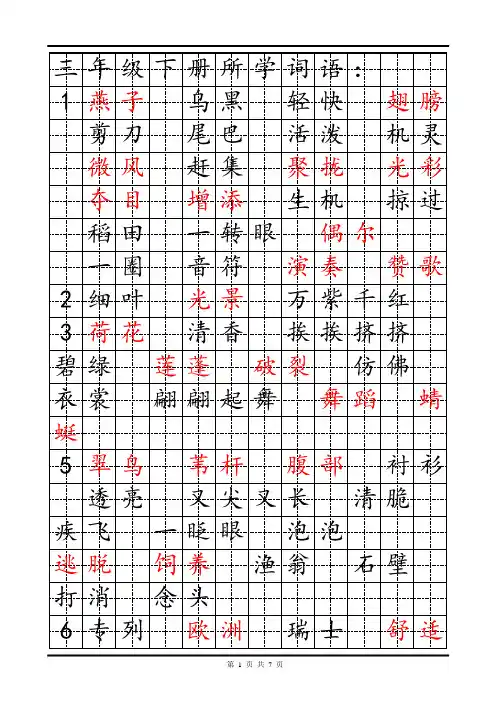 三年级下册所学词语：
1 燕子 乌黑 轻快 翅膀
剪刀 尾巴 活泼 机灵
微风 赶集 聚拢 光彩
夺目 增添 生机 掠过
稻田 一转眼 偶尔
一圈 音符 演奏 赞歌
2 细叶 光景 万紫千红
3 荷花 清香 挨挨挤挤
碧绿 莲蓬 破裂 仿佛
衣裳 翩翩起舞 舞蹈 蜻
蜓
5 翠鸟 苇杆 腹部 衬衫
透亮 又尖又长 清脆
疾飞 一眨眼 泡泡
逃脱 饲养 渔翁 石壁
打消 念头
6 专列 欧洲 瑞士 舒适
第 1 页 共 7 页